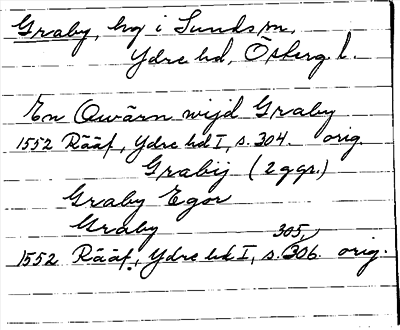 Graby, hg i Sunds sn,
Ydre hd, Östergl.
En Qwärn wijd Graby
1552 Rääf, Ydre hd I, s. 304. orig.
Grabij (2 ggr.)
Graby Egor
Graby
305,
1552 Rääf, Ydre hd I, s. 306. orig.